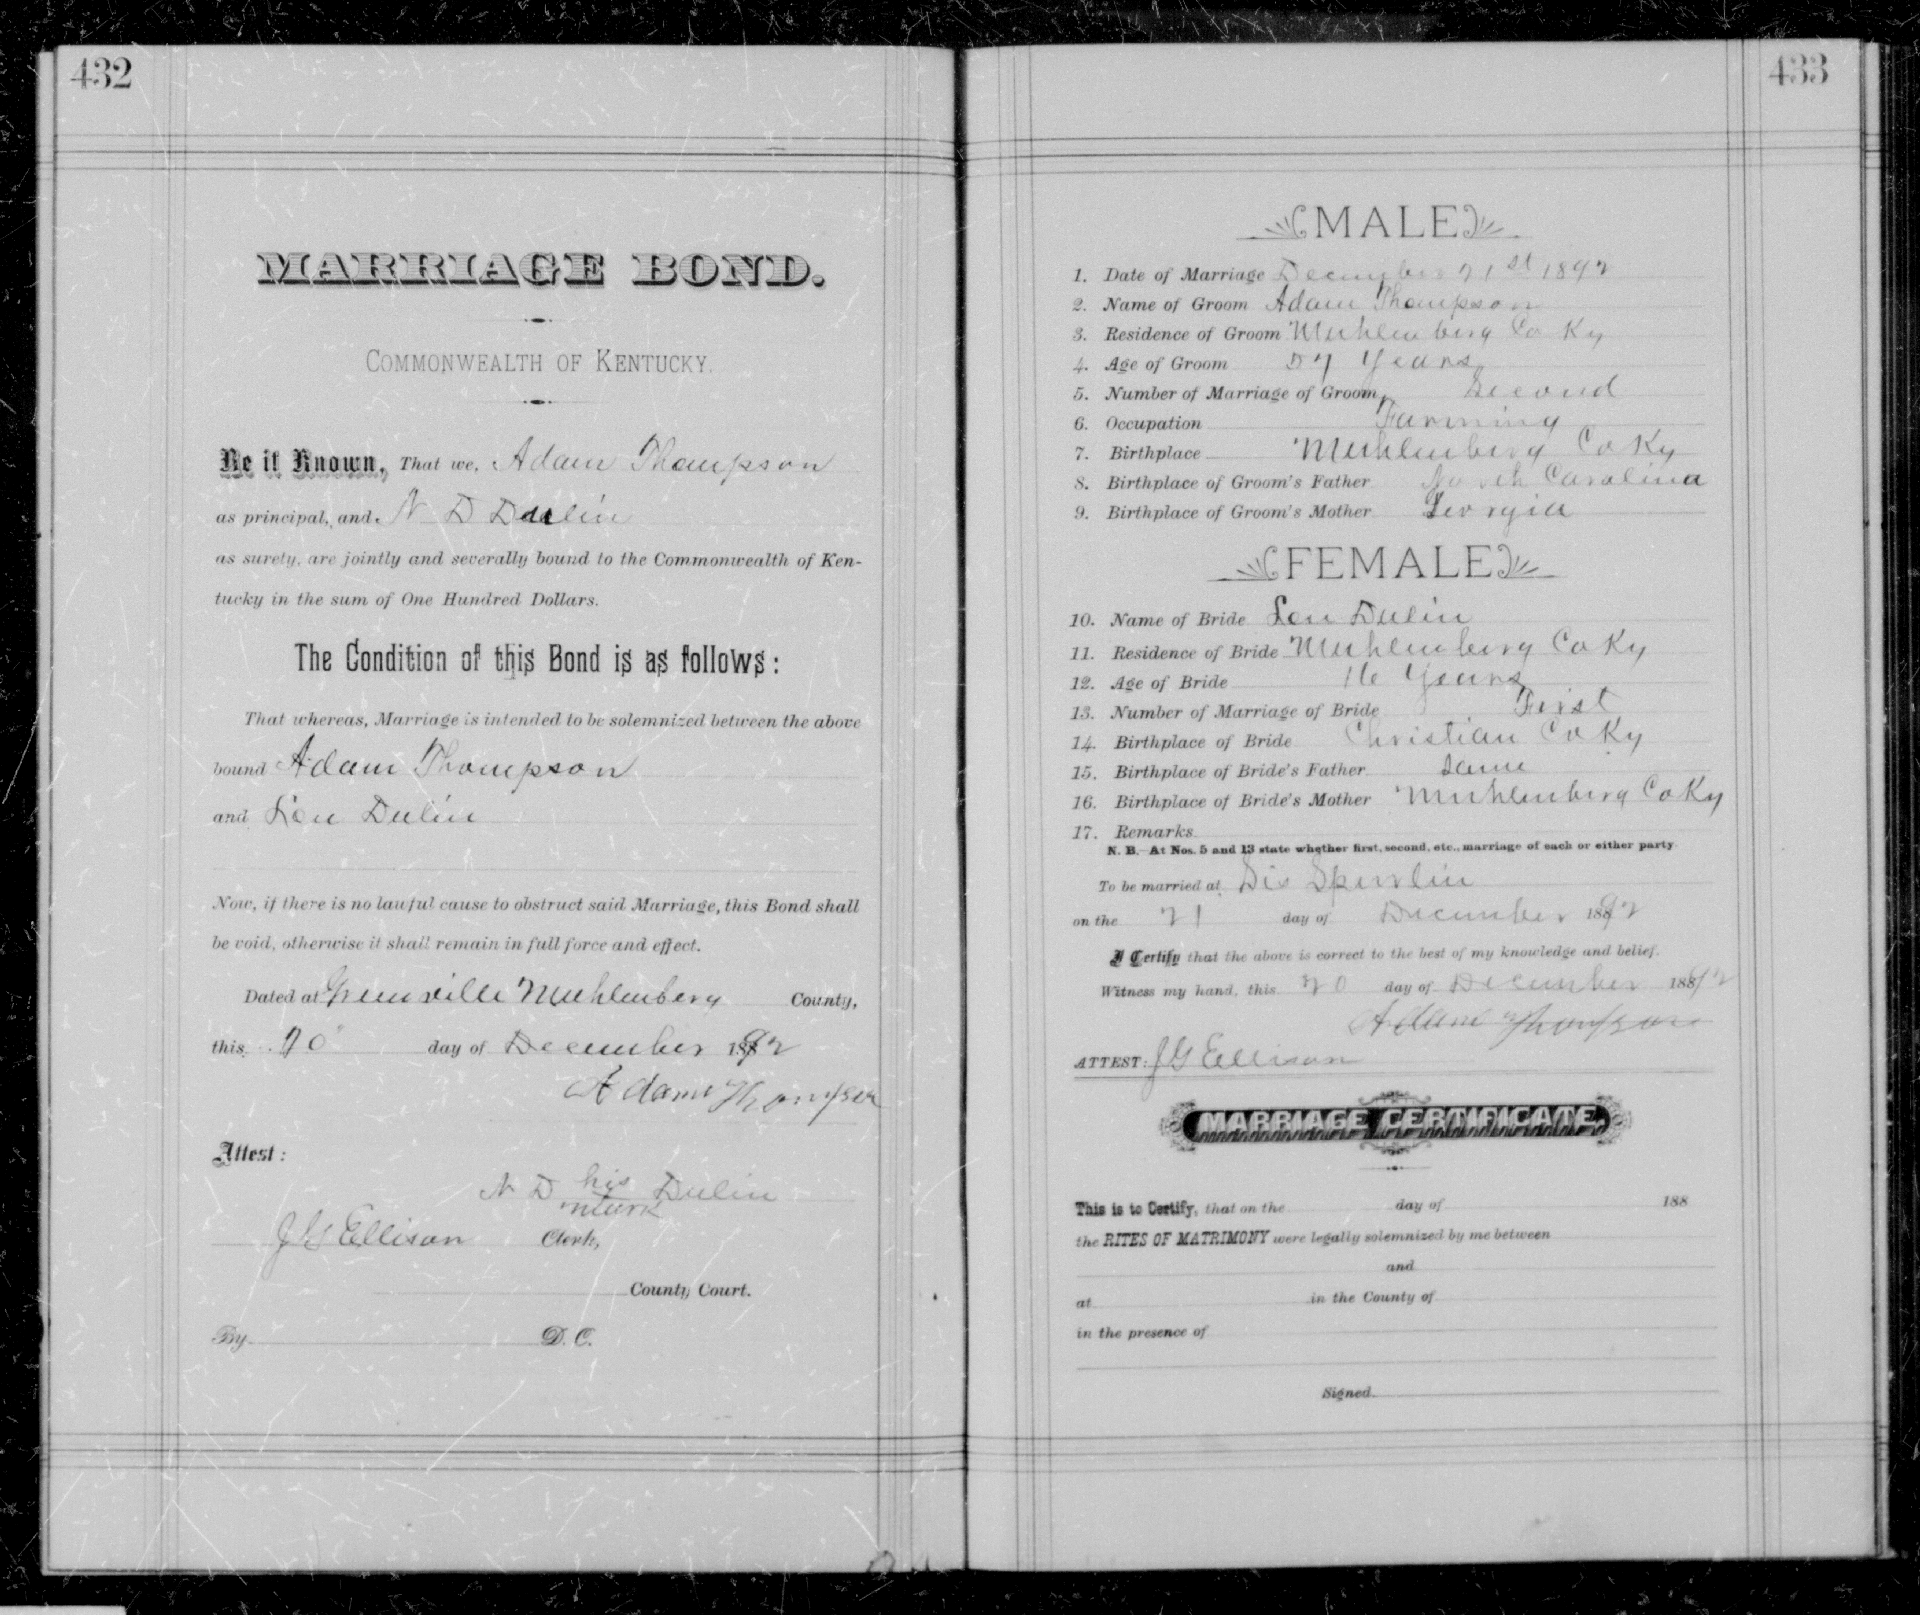 432
MARRIAGE BOND.
COMMONWEALTH OF KENTUCKY.
Be it Known, That we, Adam Thompson
as principal, and N D Dulin
as surety, are jointly and severally bound to the Commonwealth of Ken-
tucky in the sum of One Hundred Dollars.
The Condition of this Bond is as follows:
That whereas, Marriage is intended to be solemnized between the above
bound Adam Thompson
and Lou Dulin
Now, if there is no lawful cause to obstruct said Marriage, this Bond shall
be void, otherwise it shall remain in full force and effect.
Dated at Greenville Muhlenberg County,
this 20" day of December 1892
Adam Thompson
Attest:
N D his Dulin
mark
J G Ellison Clerk,
County Court.
By D. C.
433
MALE
1. Date of Marriage December 21st 1892
2. Name of Groom Adam Thompson
3. Residence of Groom Muhlenberg Co Ky
4. Age of Groom Years
5. Number of Marriage of Groom, Second
6. Occupation Farming
7. Birthplace Muhlenberg Co Ky
8. Birthplace of Groom's Father North Carolina
9. Birthplace of Groom's Mother Georgia
FEMALE
10. Name of Bride Lou Dulin
11. Residence of Bride Muhlenberg Co Ky
12. Age of Bride 16 Years
13. Number of Marriage of Bride First
14. Birthplace of Bride Christian Co Ky
15. Birthplace of Bride's Father Same
16. Birthplace of Bride's Mother Muhlenberg Co Ky
17. Remarks
N. B. At Nos. 5 and 13 state whether first, second, etc., marriage of each or either party.
To be married at Spurlin
on the 21 day of December 1892
I Certify that the above is correct to the best of my knowledge and belief.
Witness my hand, this 20 day of December 1892
Adam Thompson
ATTEST: J G Ellison
MARRIAGE CERTIFICATE.
This is to Certify, that on the day of 188
the RITES OF MATRIMONY were legally solemnized by me between
and
at in the County of
in the presence of
Signed